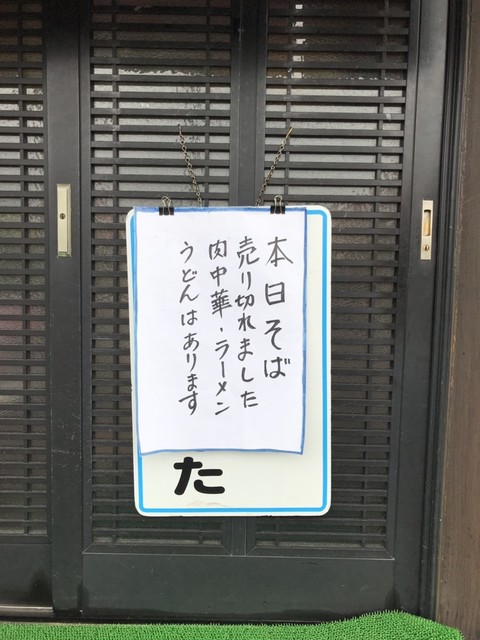 本日そば
売り切れました
肉中華・ラーメン
うどんはあります
た